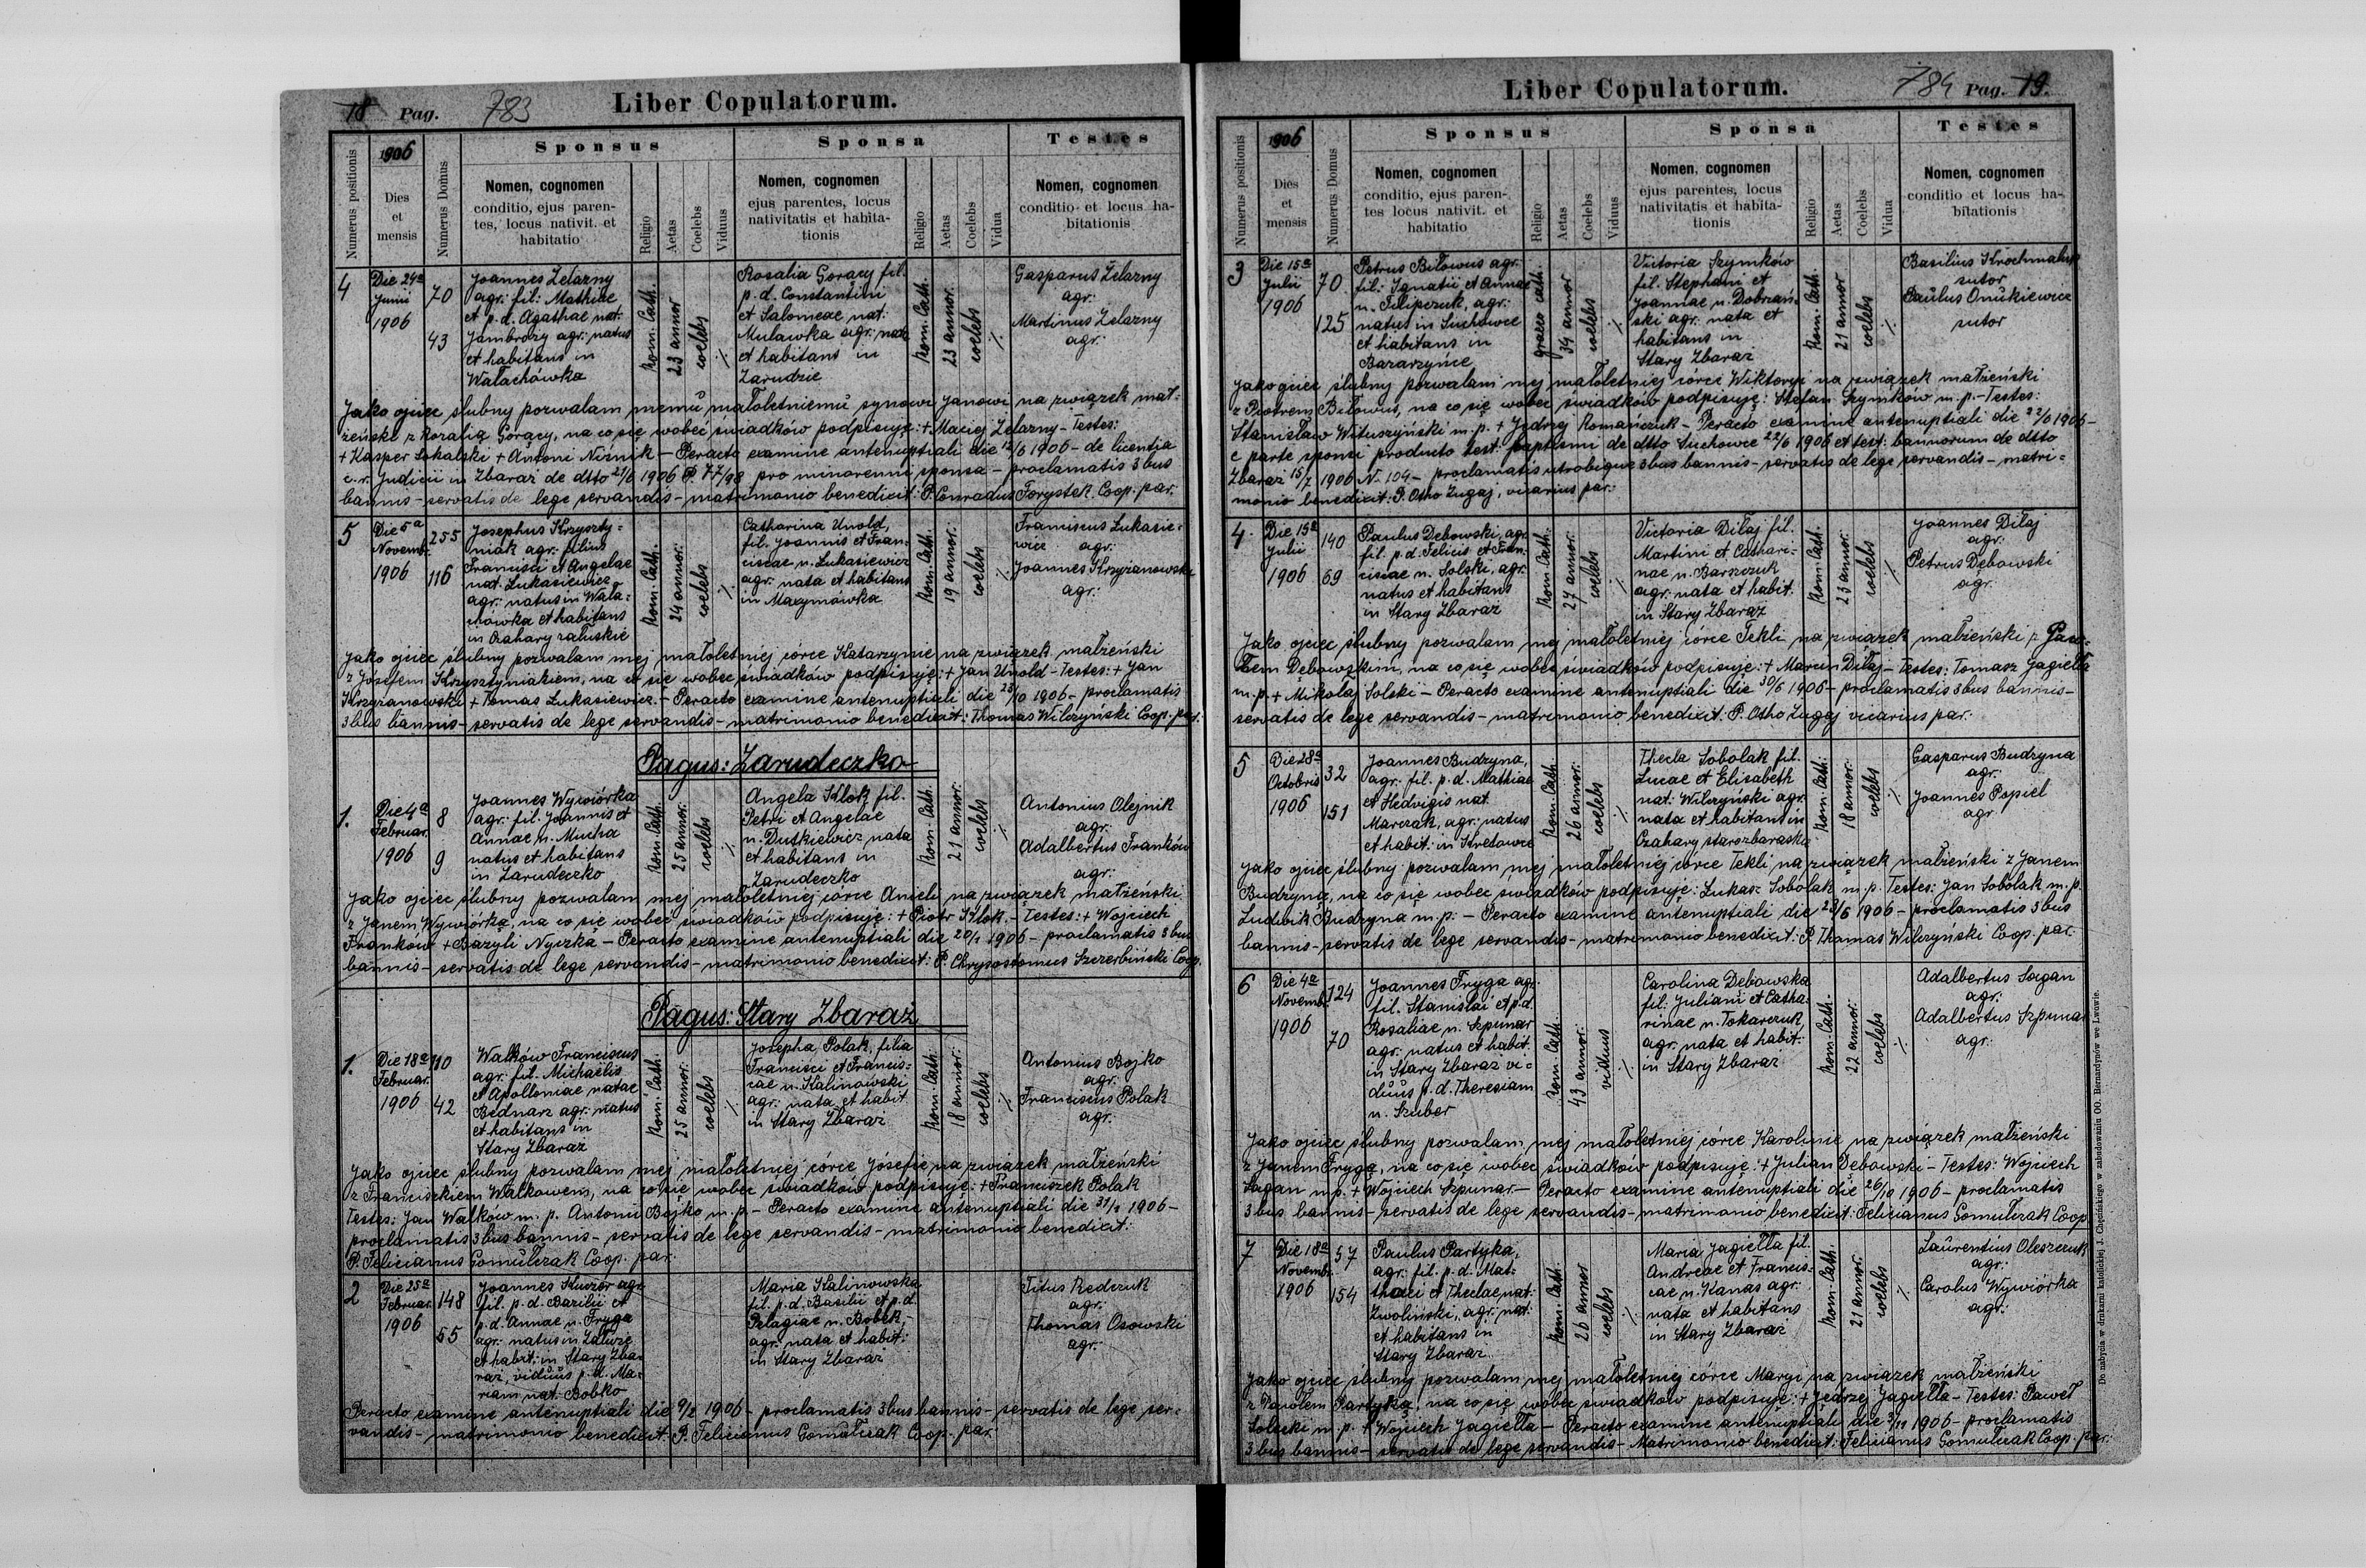 18 Pag. 783 Liber Copulatorum.
Numerus positionis
1906
Dies
et
mensis
Numerus Domus
Sponsus
Nomen, cognomen
conditio, ejus paren-
tes, locus nativit. et
habitatio
Religio
Aetas
Coelebs
Viduus
Sponsa
Nomen, cognomen
ejus parentes, locus
nativitatis et habita-
tionis
Religio
Aetas
Coelebs
Vidua
Testes
Nomen, cognomen
conditio et locus ha-
bitationis
4
Die 24a
Junii
1906
70
43
Joannes Żelazny
agr: fil: Mathiae
et p. d. Agathae nat:
Jambroży agr: natus
et habitans in
Wałachówka
Rom. Cath.
23 annor
coelebs
Rosalia Goracy fil.
p. d. Constantini
et Salomeae nat:
Mulawka agr: nata
et habitans in
Zarudzie
Rom. Cath.
23 annor.
coelebs
Gasparus Żelazny
agr:
Martinus Żelazny
agr:
Jako ojciec ślubny pozwalam memu małoletniemu synowi Janowi na związek mał-
żeński z Rozalią Gorący, na co się wobec świadków podpisuję: + Maciej Żelazny - Testes:
+ Kasper Sokalski + Antoni Niźnik - Peracto examine antenuptiali die 12/6 1906 - de licentia
c. r. Judicii in Zbaraż de dtto 21/6 1906 P. 77/98 pro minorenni sponsa - proclamatis 3 bus
bannis - servatis de lege servandis - matrimonio benedixit: P. Conradus Forystek Coop. par.
5
Die 5a
Novemb.
1906
255
116
Josephus Krzyszty-
niak agr: filius
Francisci et Angelae
nat. Łukasiewicz
agr: natus in Wała-
chówka et habitans
in Czahary załuskie
Rom. Cath.
24 annor:
coelebs
Catharina Unold,
fil. Joannis et Fran-
ciscae n. Łukasiewicz
agr: nata et habitans
in Maxymówka
Rom. Cath.
19 annor:
coelebs
Franciscus Łukasie-
wicz agr:
Joannes Krzyżanowski
agr:
Jako ojciec ślubny pozwalam mej małoletniej córce Katarzynie na związek małżeński
z Józefem Krzysztyniakiem, na co się wobec świadków podpisuję: + Jan Unold - Testes: + Jan
Krzyżanowski + Tomas Łukasiewicz. - Peracto examine antenuptiali die 23/10 1906 - proclamatis
3 bus bannis - servatis de lege servandis - matrimonio benedixit: Thomas Wilczyński Coop. par:
Pagus: Zarudeczko
1.
Die 4a
Februar.
1906
8
9
Joannes Wywiórka
agr: fil. Joannis et
Annae n. Mucha
natus et habitans
in Zarudeczko
Rom. Cath.
25 annor.
coelebs
Angela Klok fil.
Petri et Angelae
n. Dutkiewicz nata
et habitans in
Zarudeczko
Rom. Cath.
21 annor.
coelebs
Antonius Olejnik
agr:
Adalbertus Franków
agr:
Jako ojciec ślubny pozwalam mej małoletniej córce Anieli na związek małżeński
z Janem Wywiórką, na co się wobec świadków podpisuję: + Piotr Klok. - Testes: + Wojciech
Franków + Bazyli Nyczka - Peracto examine antenuptiali die 20/1 1906 - proclamatis 3 bus
bannis - servatis de lege servandis - matrimonio benedixit: P. Chrysostomus Szczerbiński Coop.
Pagus: Stary Zbaraż
1.
Die 18a
Februar.
1906
110
42
Walków Franciscus
agr: fil. Michaelis
et Apolloniae natae
Bednarz agr: natus
et habitans in
Stary Zbaraż
Rom. Cath.
25 annor.
coelebs
Josepha Polak, filia
Francisci et Francis-
cae n. Kalinowski
agr: nata et habit
in Stary Zbaraż
Rom. Cath.
18 annor:
coelebs
Antonius Bojko
agr:
Franciscus Polak
agr:
Jako ojciec ślubny pozwalam mej małoletniej córce Józefie na związek małżeński
z Franciszkiem Walkowem, na co się wobec świadków podpisuję: + Franciszek Polak
Testes: Jan Walków m. p. Antoni Bojko m. p. - Peracto examine antenuptiali die 31/1 1906 -
proclamatis 3 bus bannis - servatis de lege servandis - matrimonio benedixit:
P. Felicianus Gomułczak Coop. par.
2
Die 25a
Februar.
1906
148
55
Joannes Kuzör agr:
fil. p. d. Bazilii et
p. d. Annae n. Fryga
agr: natus in Załuże
et habit: in Stary Zba-
raż, viduus p. d. Ma-
riam nat: Bobko
Maria Kalinowska
fil. p. d. Basilii et p. d.
Pelagiae n. Bobek,
agr: nata et habit:
in Stary Zbaraż
Titus Redczuk
agr:
Thomas Osowski
agr:
Peracto examine antenuptiali die 9/2 1906 - proclamatis 3 bus bannis - servatis de lege ser-
vandis - matrimonio benedixit: P. Felicianus Gomułczak Coop. par:
Liber Copulatorum. 784 Pag. 19.
Numerus positionis
1906
Dies
et
mensis
Numerus Domus
Sponsus
Nomen, cognomen
conditio, ejus paren-
tes locus nativit. et
habitatio
Religio
Aetas
Coelebs
Viduus
Sponsa
Nomen, cognomen
ejus parentes, locus
nativitatis et habita-
tionis
Religio
Aetas
Coelebs
Vidua
Testes
Nomen, cognomen
conditio et locus ha-
bitationis
3
Die 15a
Julii
1906
70
125
Petrus Biłowus agr.
fil: Ignatii et Annae
n. Filipczuk, agr:
natus in Suchowce
et habitans in
Bazarzyńce
graeco cath.
34 annor
coelebs
Victoria Szymków
fil. Stephani et
Joannae n. Dobrzań-
ski agr: nata et
habitans in
Stary Zbaraż
Rom. Cath.
21 annor
coelebs
Basilius Krochmaluk
sutor
Paulus Onukiewicz
sutor
Jako ojciec ślubny pozwalam mej małoletniej córce Wiktoryi na związek małżeński
z Piotrem Biłowus, na co się wobec świadków podpisuję: Stefan Szymków m. p. - Testes:
Stanisław Wituszyński m. p. + Jędrzej Romańczuk - Peracto examine antenuptiali die 22/6 1906 -
e parte sponsi producto test. baptismi de dtto Suchowce 22/6 1906 et test: bannorum de dtto
Zbaraż 15/7 1906 N. 104 - proclamatis utrobique 3 bus bannis - servatis de lege servandis - matri-
monio benedixit: P. Otho Zugaj, vicarius par:
4
Die 15a
Julii
1906
140
69
Paulus Dębowski, agr
fil. p. d. Felicis et Fran-
ciscae n. Solski, agr:
natus et habitans
in Stary Zbaraż
Rom Cath:
27 annor:
coelebs
Victoria Diłaj fil.
Martini et Cathari-
nae n. Barszczuk
agr: nata et habit.
in Stary Zbaraż
Rom: Cath:
23 annor:
coelebs
Joannes Diłaj
agr:
Petrus Dębowski
agr:
Jako ojciec ślubny pozwalam mej małoletniej córce Tekli na związek małżeński z Paw-
łem Dębowskim, na co się wobec świadków podpisuję: + Marcin Diłaj - Testes: Tomasz Jagiełła
m. p. + Mikołaj Solski - Peracto examine antenuptiali die 30/6 1906 - proclamatis 3 bus bannis -
servatis de lege servandis - matrimonio benedixit: P. Otho Zugaj vicarius par:
5
Die 28a
Octobris
1906
32
151
Joannes Budzyna,
agr. fil. p. d. Mathiae
et Hedvigis nat.
Marczak, agr: natus
et habit: in Kretowce
Rom. Cath.
26 annor:
coelebs
Thecla Sobolak fil.
Lucae et Elisabeth
nat: Wilczyński agr:
nata et habitant in
Czahary starozbaraskie
Rom: Cath:
18 annor:
coelebs
Gasparus Budzyna
agr:
Joannes Popiel
agr
Jako ojciec ślubny pozwalam mej małoletniej córce Tekli na związek małżeński z Janem
Budzyną, na co się wobec świadków podpisuję: Łukasz Sobolak m. p. Testes: Jan Sobolak m. p.
Ludwik Budzyna m. p. - Peracto examine antenuptiali die 23/6 1906 - proclamatis 3 bus
bannis - servatis de lege servandis - matrimonio benedixit: P. Thomas Wilczyński Coop. par.
6
Die 4a
Novemb.
1906
124
70
Joannes Fryga agr.
fil. Stanislai et p.d.
Rosaliae n. Szpunar
agr: natus et habit.
in Stary Zbaraż vi-
duus p. d. Theresiam
n. Szuber
Rom Cath.
43 annor:
viduus
Carolina Dębowska
fil: Juliani et Catha-
rinae n. Tokarczuk,
agr: nata et habit:
in Stary Zbaraż
Rom: Cath.
22 annor:
coelebs
Adalbertus Sagan
agr:
Adalbertus Szpunar
agr:
Jako ojciec ślubny pozwalam mej małoletniej córce Karolinie na związek małżeński
z Janem Frygą, na co się wobec świadków podpisuję: + Julian Dębowski - Testes: Wojciech
Sagan m.p. + Wojciech Szpunar. - Peracto examine antenuptiali die 26/10 1906 - proclamatis
3 bus bannis - servatis de lege servandis - matrimonio benedixit: Felicianus Gomułczak Coop
7
Die 18a
Novemb.
1906
57
154
Paulus Partyka,
agr: fil. p. d. Mat-
thaei et Theclae nat:
Zwoliński, agr: nat:
et habitans in
Stary Zbaraż
Rom. Cath.
26 annor
coelebs
Maria Jagiełła fil.
Andreae et Francis-
cae n. Kanas agr:
nata et habitans
in Stary Zbaraż
Rom. Cath.
21 annor:
coelebs
Laurentius Oleszczuk
agr:
Carolus Wywiórka
agr:
Jako ojciec ślubny pozwalam mej małoletniej córce Maryi na związek małżeński
z Pawłem Partyką, na co się wobec świadków podpisuję: + Jędrzej Jagiełła - Testes: Paweł
Solecki m. p. + Wojciech Jagiełła - Peracto examine antenuptiali die 3/11 1906 - proclamatis
3 bus bannis - servatis de lege servandis - Matrimonio benedixit: Felicianus Gomułczak Coop. par:
Do nabycia w drukarni katolickiej J. Chęcińskiego w zabudowaniu OO. Bernardynów we Lwowie.